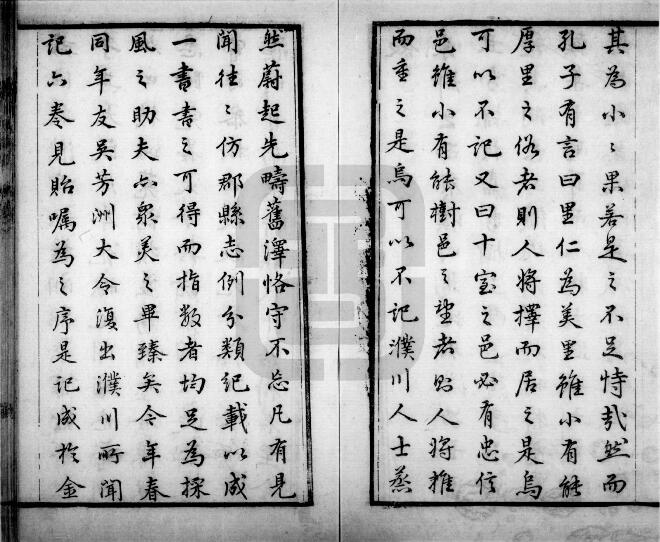 其為小〻果若是之不足恃哉然而
孔子有言曰里仁為美里雖小有能
厚里之俗者則人將擇而居之是烏
可以不記又曰十室之邑必有忠信
邑雖小有能樹邑之望者則人將推
而重之是烏可以不記濮川人士蒸
然蔚起先疇舊澤恪守不忘凡有見
聞往〻仿郡縣志例分類紀載以成
一書書之可得而指数者均足為採
風之助夫亦衆美之畢臻矣今年春
同年友吴芳洲大令復出濮川所聞
記六卷見貽囑為之序是記成於金